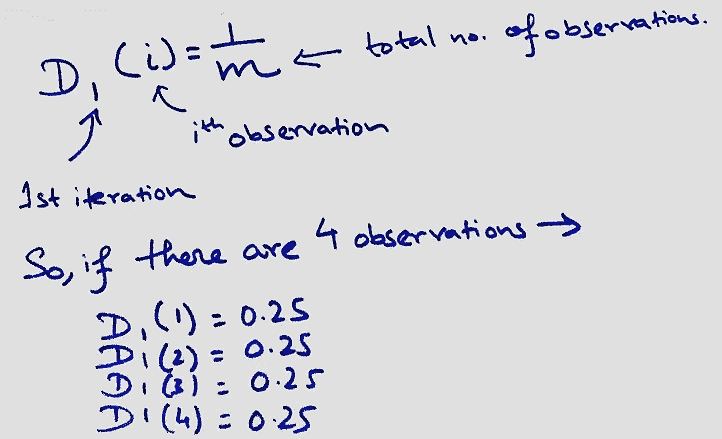 D₁(i) = 1/m ← total no. of observations.
ith observation
1st iteration
So, if there are 4 observations →
D₁(1) = 0.25
D₁(2) = 0.25
D₁(3) = 0.25
D₁(4) = 0.25